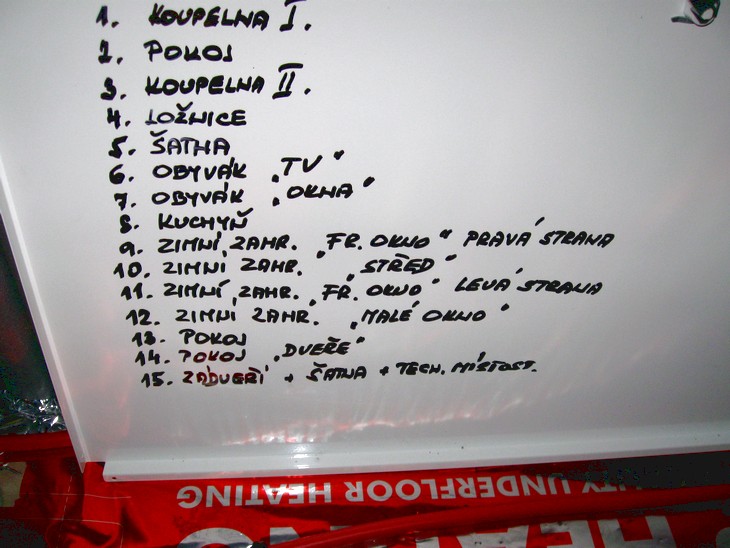 1. KOUPELNA I.
2. POKOJ
3. KOUPELNA II.
4. LOŽNICE
5. ŠATNA
6. OBYVÁK „TV"
7. OBYVÁK „OKNA"
8. KUCHYŇ
9. ZIMNÍ ZAHR. „FR. OKNO" PRAVÁ STRANA
10. ZIMNÍ ZAHR. „STŘED"
11. ZIMNÍ ZAHR. „FR. OKNO" LEVÁ STRANA
12. ZIMNÍ ZAHR. „MALÉ OKNO"
13. POKOJ
14. POKOJ „DVEŘE"
15. ZÁDVEŘÍ + ŠATNA + TECH. MÍSTOST.
ITY UNDERFLOOR HEATING